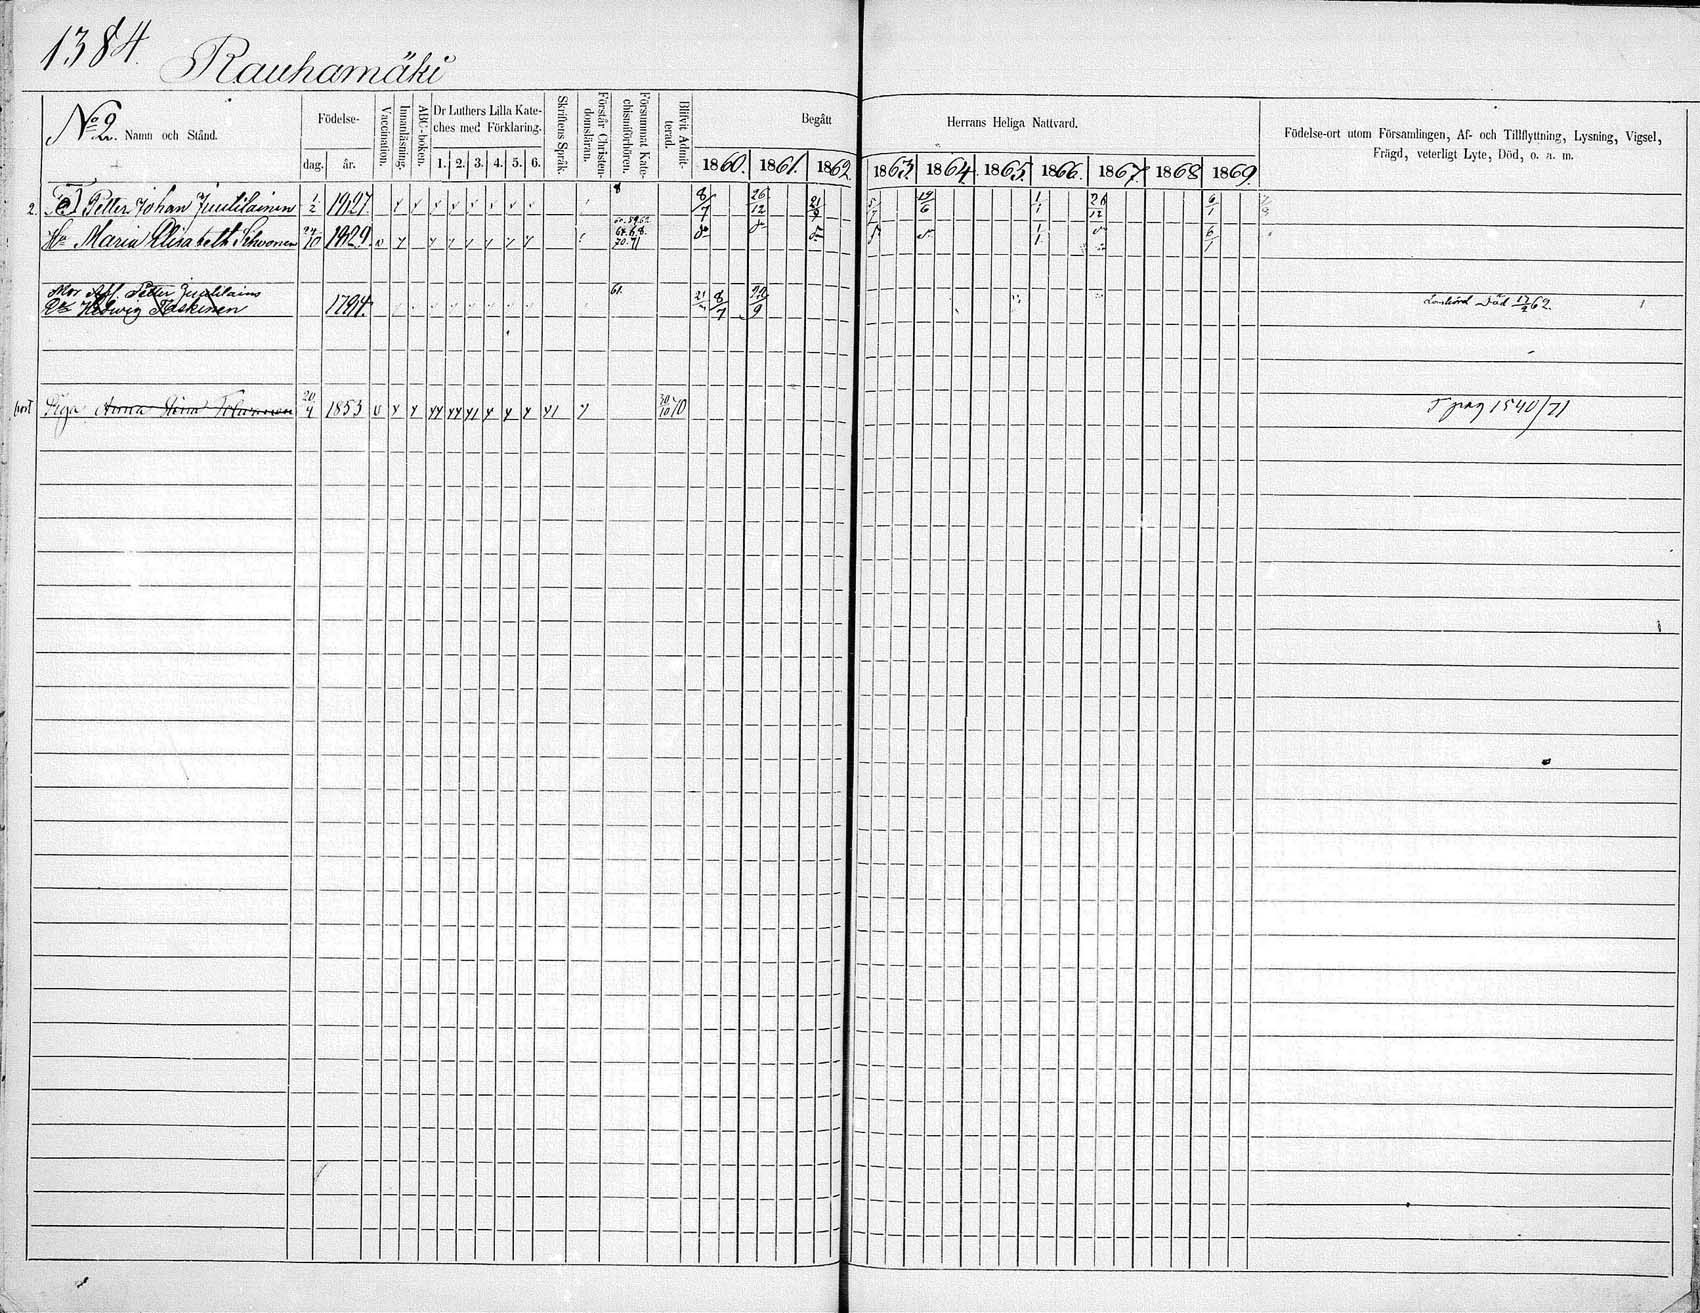 1384.
Rauhamäki
No 2. Namn och Stånd.
Födelse-
dag. år.
Vaccination.
Innanläsning.
ABC-boken.
Dr Luthers Lilla Kate-
ches med Förklaring.
1. 2. 3. 4. 5. 6.
Skriftens Språk.
Förstår Christen-
domsläran.
Försummat Kate-
chismiförhören.
Blifvit Admit-
terad.
Begått
Herrans Heliga Nattvard.
1860. 1861. 1862. 1863. 1864. 1865. 1866. 1867. 1868 1869.
Födelse-ort utom Församlingen, Af- och Tillflyttning, Lysning, Vigsel,
Frägd, veterligt Lyte, Död, o. s. m.
2. Petter Johan Juutilainen 1/2 1827. 8/7 26/12 21/9 5/7 19/6 1/1 26/12 6/1
Hu Maria Elisabeth 24/10 1829. 70.71 1/1 6/1
Mor Petter Juutilains
Hedwig 1794. 61. 8/7 22/9 Död 17/2 62.
Piga Anna Stina 20/4 1853 30/10 70 pag 1540/71